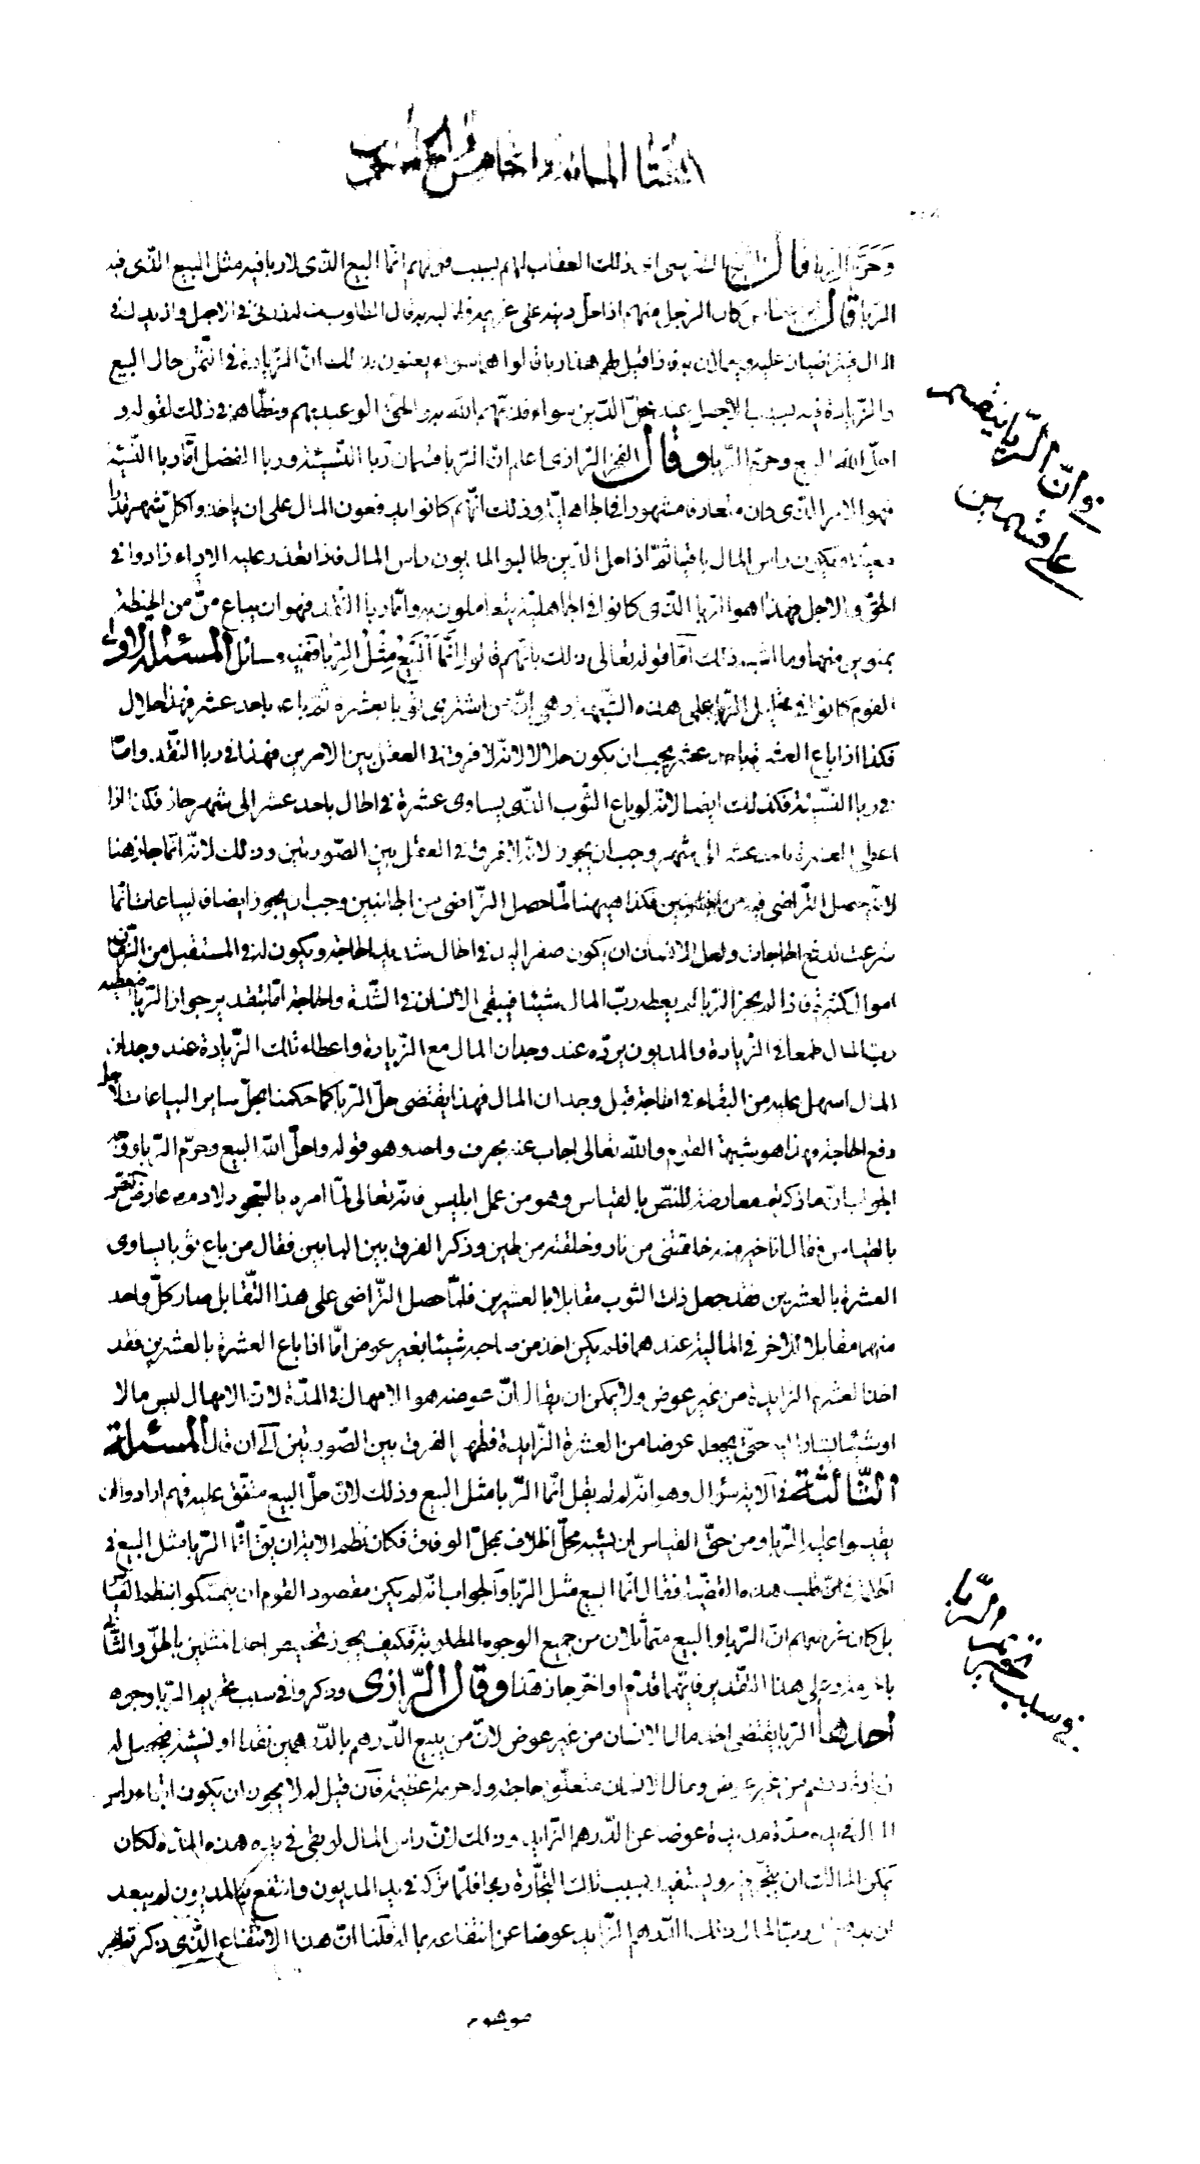 وَحَرَّمَ الرِّبا قال الشهاب يعنى ان ذلك العقاب لهم بسبب قولهم انما البيع الذى لا ربا فيه مثل البيع الذى فيه
الربا قال ابن عباس كان الرجل منهم اذا حل دينه على غريمه فطالبه به قال المطلوب منه له زدنى فى الاجل وازيدك فى
المال فيتراضيان عليه ويعملان به فاذا قيل لهم هذا ربا قالوا هما سواء يعنون بذلك انّ الزيادة فى الثمن حال البيع
والزيادة فيه بسبب الاجل عند محلّ الدّين سواء فذمّهم الله به والحق الوعيد بهم وخطّاهم فى ذلك لقوله و
احلّ الله البيع وحرّم الرّبا وقال الفخر الرّازى اعلم انّ الرّبا قسمان ربا النّسيئة وربا الفضل امّا ربا النّسيئة
فهو الامر الذى كان متعارفا مشهورا فى الجاهليّة وذلك انّهم كانوا يدفعون المال على ان ياخذوا كلّ شهر قدرا
معيّنا ويكون راس المال باقيا ثمّ اذا حل الدّين طالبوا المديون براس المال فاذا تعذر عليه الاداء زادوا فى
الحقّ والاجل فهذا هو الرّبا الذّى كانوا فى الجاهليّة يتعاملون به وامّا ربا النّقد فهو ان يباع منّ من الحنطة
بمنوين منها وما اشبه ذلك امّا قوله تعالى ذلك بانّهم قالوا اِنَّمَا الْبَيْعُ مِثْلُ الرِّبا ففيه مسائل المسئلة الاولى
القوم كانوا فى تحليل الرّبا على هذه الشّبهة وهى انّ من اشترى ثوبا بعشرة ثمّ باعه باحد عشر فهذا حلال
فكذا اذا باع العشرة باحد عشر يجب ان يكون حلالا لانّه لا فرق فى العقل بين الامرين فهذا فى ربا النّقد وامّا
فى ربا النّسيئة فكذلك ايضا لانّه لو باع الثّوب الذّى يساوى عشرة فى الحال باحد عشر الى شهر جاز فكذا اذا
اعطى العشرة باحد عشر الى شهر وجب ان يجوز لانّه لا فرق فى العقل بين الصّورتين وذلك لانّه انّما جاز هنا
لانّه حصل التّراضى فيه من الجانبين فكذا هيهنا لمّا حصل التّراضى من الجانبين وجب ان يجوز ايضا فالبياعات انّما
شرعت لدفع الحاجات ولعل الانسان ان يكون صفر اليد فى الحال شديد الحاجة ويكون له فى المستقبل من الزّمان
اموال كثيرة فاذا لم يجز الرّبا لم يعطه ربّ المال شيئا فيبقى الانسان فى الشّدّة والحاجة امّا بتقدير جواز الرّبا فيعطيه
ربّ المال طمعا فى الزّيادة والمديون يردّه عند وجدان المال مع الزّيادة واعطاء تلك الزّيادة عند وجدان
المال اسهل عليه من البقاء فى الحاجة قبل وجدان المال فهذا يقتضى حلّ الرّبا كما حكمنا بحلّ ساير البياعات لاجل
دفع الحاجة وهذا هو شبهة القوم والله تعالى اجاب عنه بحرف واحد وهو قوله واحلّ الله البيع وحرّم الرّبا ووجه
الجواب انّ ما ذكرتم معارضة للنصّ بالقياس وهو من عمل ابليس فانّه تعالى لمّا امره بالسّجود لادم عارض النصّ
بالقياس فقال انا خير منه خلقتنى من نار وخلقته من طين وذكر الفرق بين البابين فقال من باع ثوبا يساوى
العشرة بالعشرين فقد جعل ذات الثوب مقابلا بالعشرين فلمّا حصل التّراضى على هذا التّقابل صار كلّ واحد
منهما مقابلا للآخر فى الماليّة عندهما فلم يكن اخذ من صاحبه شيئا بغير عوض امّا اذا باع العشرة بالعشرين فقد
اخذ العشرة الزايدة من غير عوض ولا يمكن ان يقال انّ عوضه هو الامهال فى المدّة لانّ الامهال ليس مالا
او شيئا يشار اليه حتّى يجعله عوضا من العشرة الزّايدة فظهر الفرق بين الصّورتين الى ان قال المسئلة
الثّالثة فى الآية سؤال وهو انّه لم لم يقل انّما الرّبا مثل البيع وذلك لانّ حلّ البيع متّفق عليه فهم ارادوا ان
يقيسوا عليه الرّبا ومن حقّ القياس ان يشبه محلّ الخلاف بمحلّ الوفاق فكان نظم الاية ان يق انّما الرّبا مثل البيع فما
الحكمة فى قلب هذه القضيّة فقال انّما البيع مثل الرّبا والجواب انّه لم يكن مقصود القوم ان يتمسّكوا بنظم القياس
بل كان غرضهم انّ الرّبا والبيع متماثلان من جميع الوجوه المطلوبة فكيف يجوز تخصيص احد المثلين بالحلّ والثّانى
بالحرمة وعلى هذا التقدير فايّهما قدّم او اخّر جاز هذا وقال الرّازى وذكروا فى سبب تحريم الرّبا وجوه
احدها الرّبا يقتضى اخذ مال الانسان من غير عوض لانّ من يبيع الدّرهم بالدّرهمين نقدا او نسيئة فيحصل له
زيادة درهم من غير عوض ومال الانسان متعلّق حاجته وله حرمة عظيمة فان قيل لم لا يجوز ان يكون ابقاء راس
المال فى يده مدّة مديدة عوضا عن الدّرهم الزّايد وذلك لانّ راس المال لو بقى فى يده هذه المدّة لكان
يمكن المالك ان يتّجر فيه ويستفيد بسبب تلك التّجارة ربحا فلمّا تركه فى يد المديون وانتفع به المديون لم يبعد
ان يدفع الى ربّ المال ذلك الدّرهم الزّايد عوضا عن انتفاعه بماله قلنا انّ هذا الانتفاع الذّى ذكرتم
فى انّ الرّبا ينقسم
على قسمين
فى سبب تحريم الرّبا